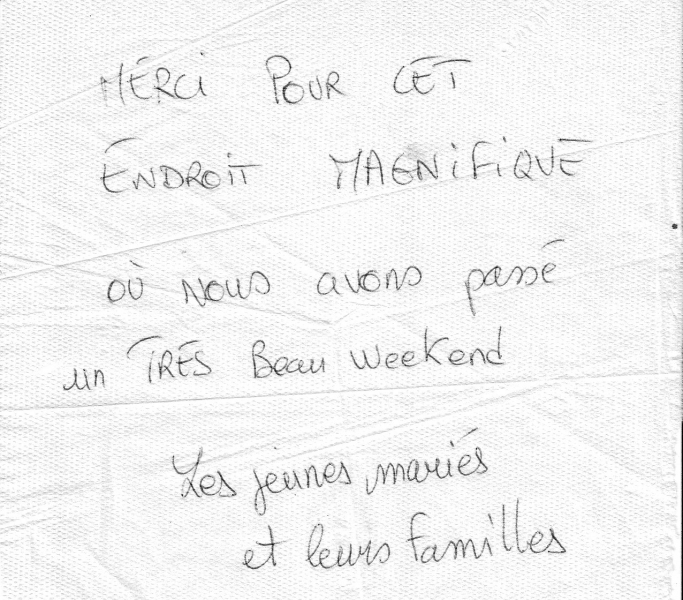 MERCi POUR CET
ENDROiT MAGNiFiQUE
où NOUS avons passé
un TRES Beau weekend
Les jeunes mariés
et leurs familles